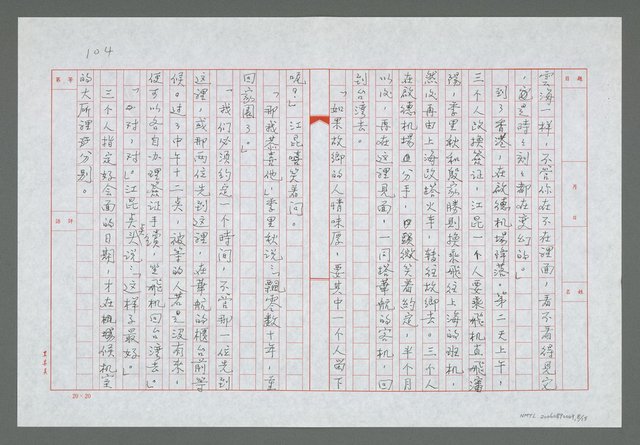 104
雲海一樣，不管你在不在裡面，看不看得見它
，時時刻刻都在變幻的。」
到了香港，在啟德机場降落。第二天上午，
三個人改換簽証，江昆一個人要乘飛机直飛瀋
陽，李里秋和殷家勝則換乘飛往上海的班机，
然後再由上海改搭火車，轉往故鄉去。三個人
在啟德机場分手，微笑著約定，半個月
以後，再在這裡見面，一同搭華航的客机，回
到台灣去。
「如果故鄉的人情味厚，要其中一個人留下
呢？」江昆嘻笑着問。
「那我恭喜他」李里秋說：「飄零數十年，重
回家園了。」
「我們必須約定一個時間，不管那一位先到
這裡，或那兩位先到這裡，在華航的櫃台前等
候。过了中午十二点，被等的人若是沒有來，
便可以各自办理簽証手續，坐飛机回台灣去。」
「对，对。」江昆点点头說：「这樣子最好。」
三個人指定好会面的日期，才在机場候机室
的大厅裡分别。
20×20